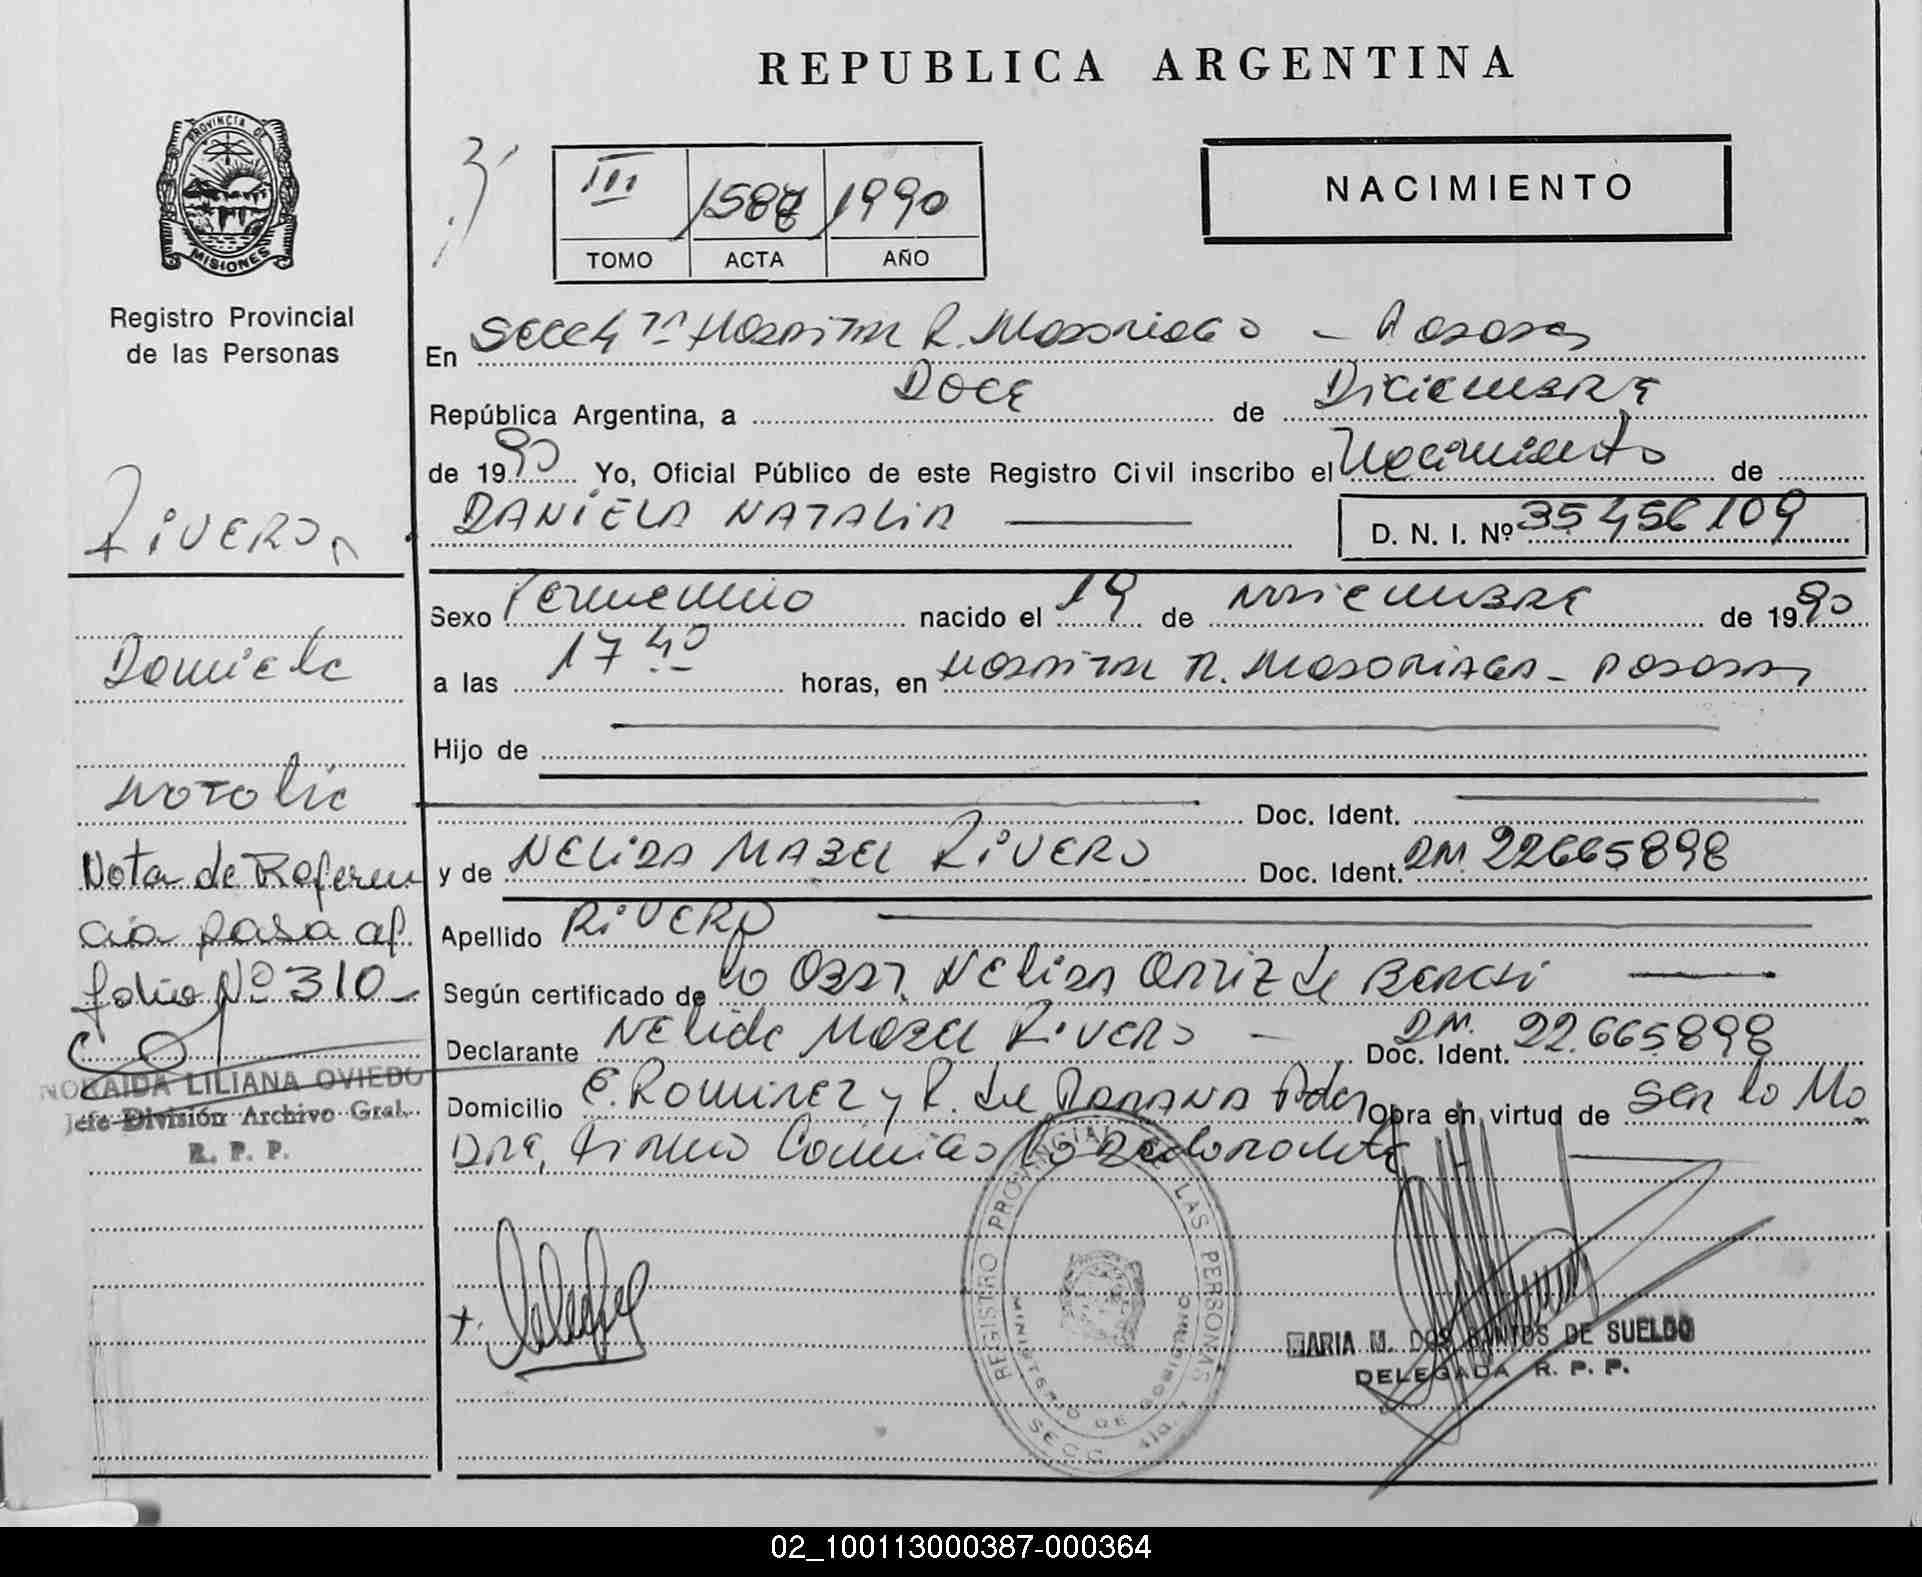 REPUBLICA ARGENTINA
PROVINCIA DE
MISIONES
Registro Provincial
de las Personas
III 1587 1990
TOMO ACTA AÑO
NACIMIENTO
En Secc 4ta Hospital R. Madariaga - Posadas
República Argentina, a Doce de Diciembre
de 1990 Yo, Oficial Público de este Registro Civil inscribo el Nacimiento de
DANIELA NATALIA
D. N. I. Nº 35 456 109
RIVERO
Sexo Femenino nacido el 19 de Noviembre de 1990
a las 17 40 horas, en Hospital R. Madariaga - Posadas
Daniela
Hijo de
Natalia
Doc. Ident.
y de NELIDA MABEL RIVERO Doc. Ident. DNI 22665898
Nota de Referen
cia pasa al
folio Nº 310
Apellido RIVERO
Según certificado de la Obst. Nelida Ortiz de
Declarante Nelida Mabel Rivero - Doc. Ident. DNI. 22.665898
NORAIDA LILIANA OVIEDO
Jefe División Archivo Gral.
R. P. P.
Domicilio C. Ramirez y R. de Obra en virtud de ser la Ma
dre, Firma Conmigo la Declarante
REGISTRO PROVINCIAL DE LAS PERSONAS
MINISTERIO DE GOBIERNO
SECC. 4ta.
MARIA M. DOS SANTOS DE SUELDO
DELEGADA R. P. P.
02_100113000387-000364